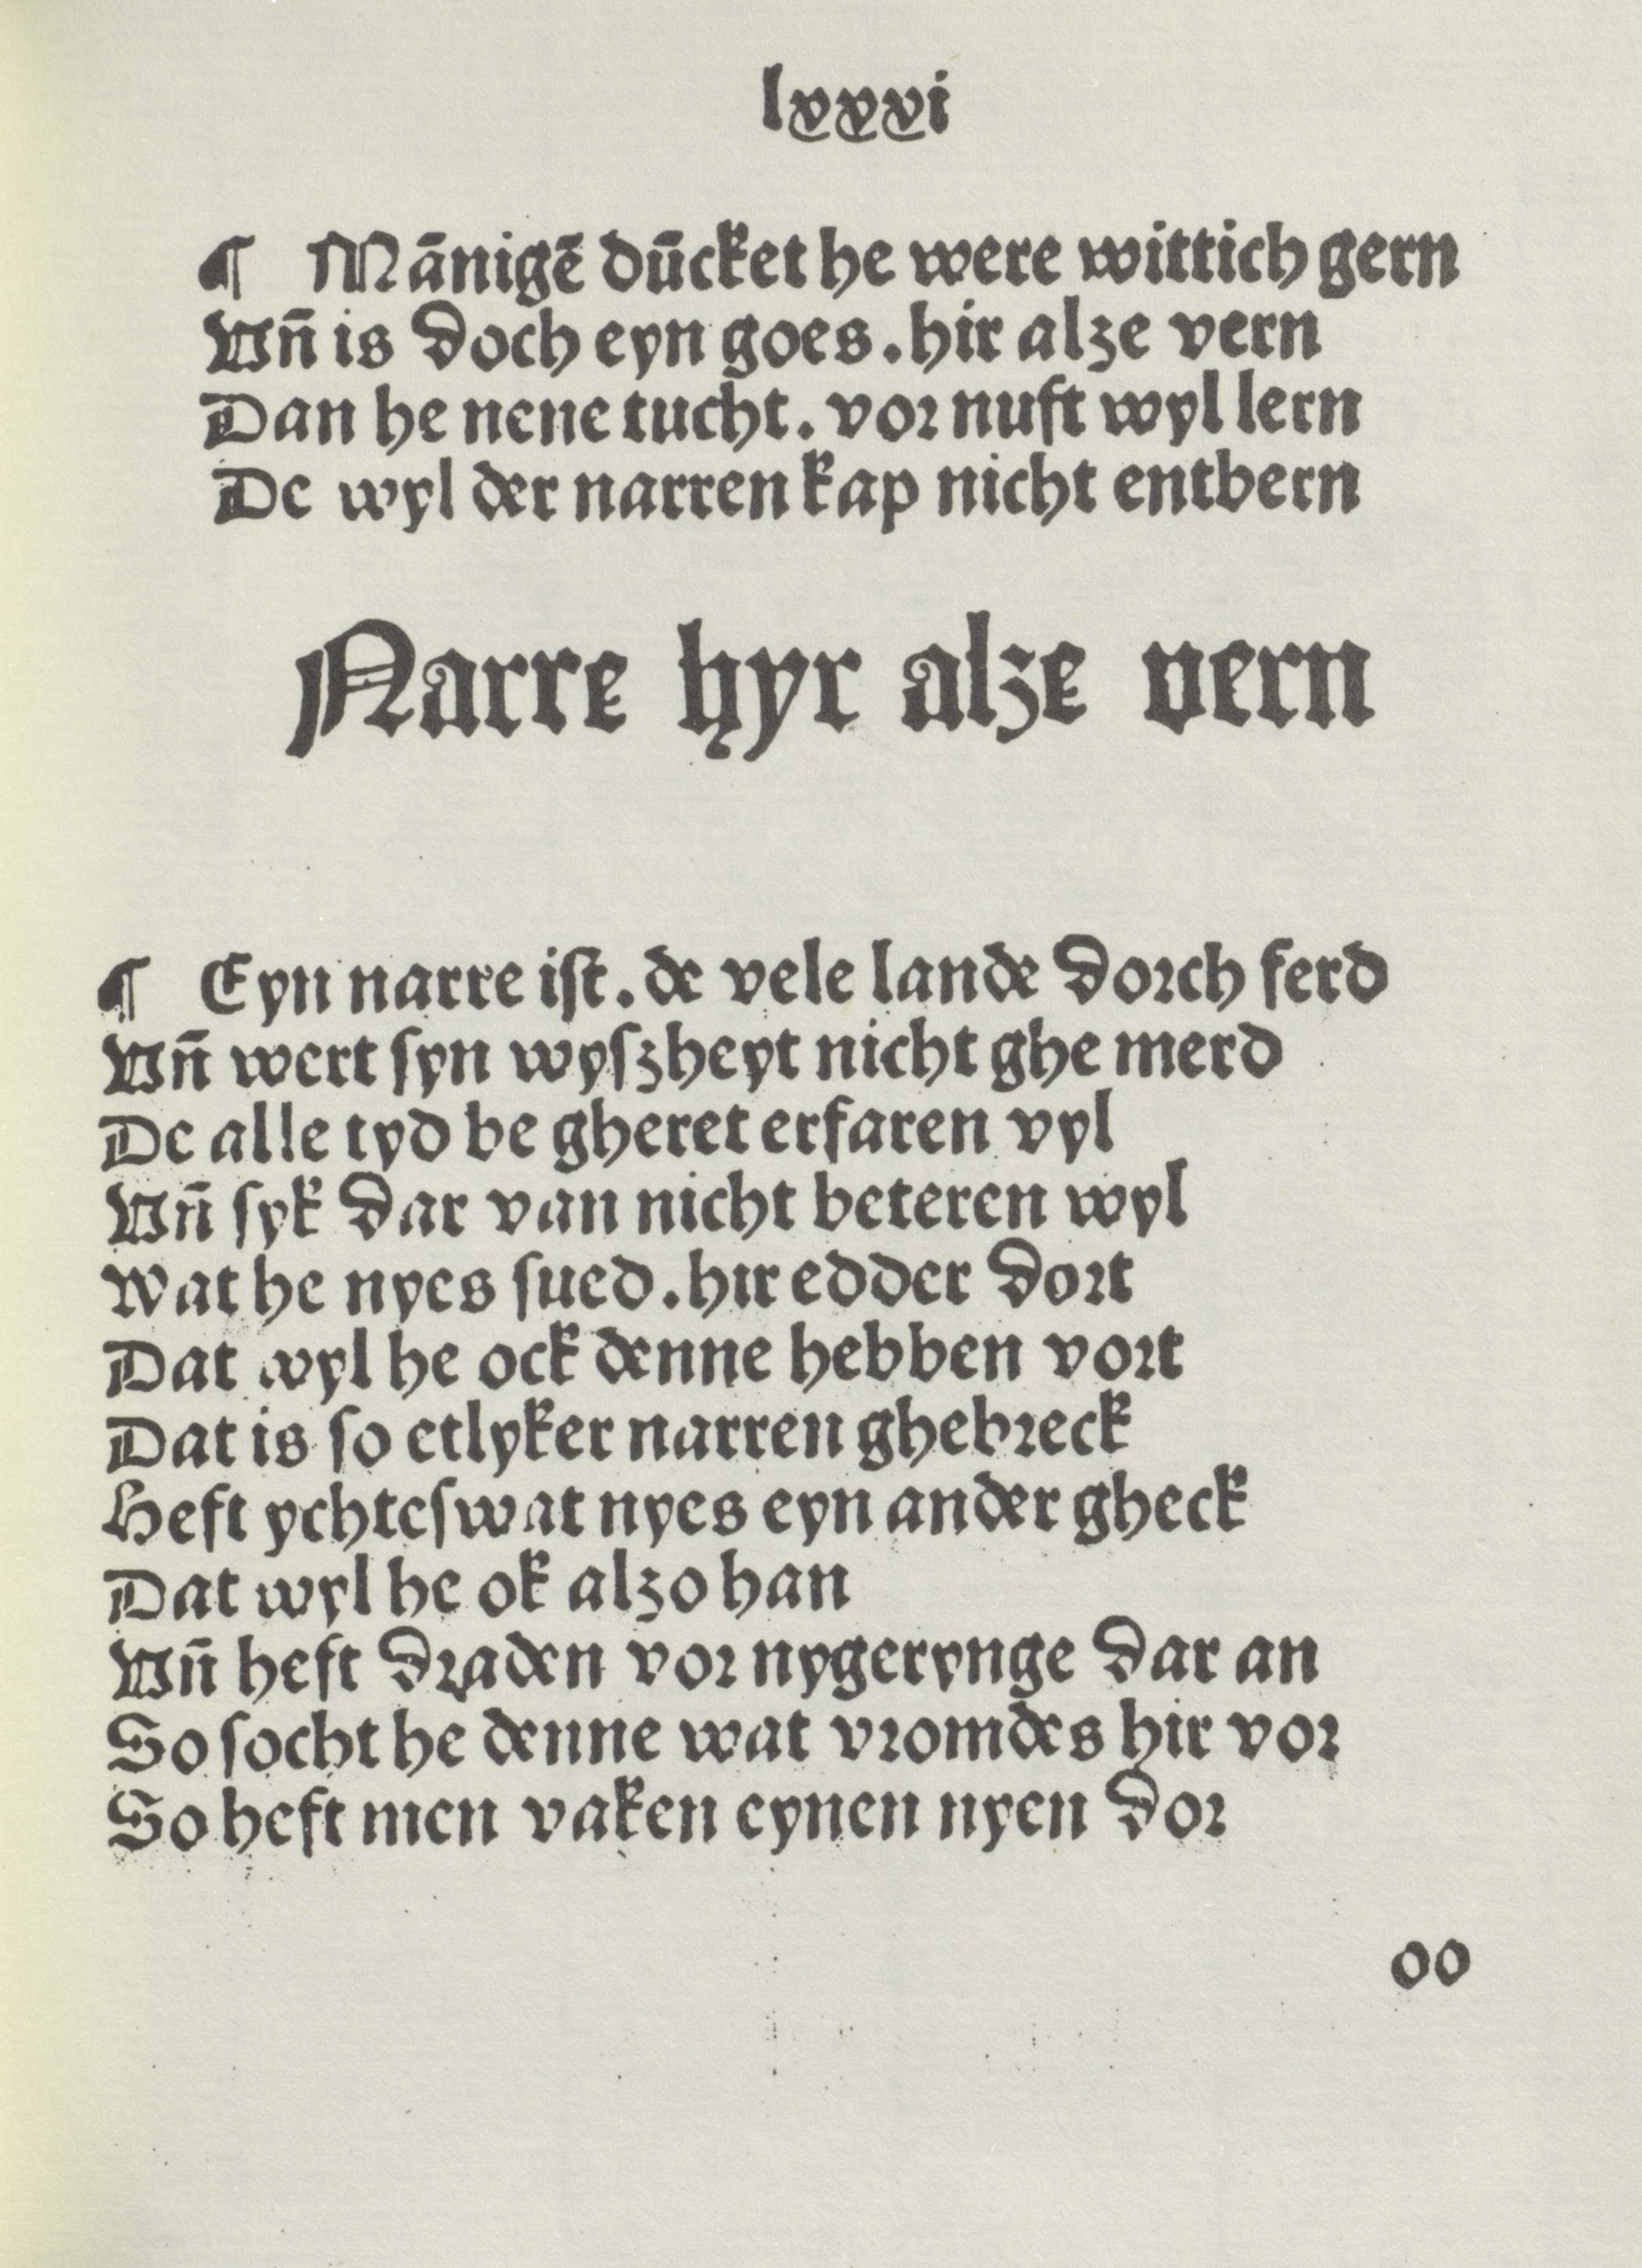 lxxxvi
¶ Mānigē dūcket he were wittich gern
Vn̄ is doch eyn goes. hir alze vern
Dan he nene tucht. vor nuft wyl lern
De wyl der narren kap nicht entbern
Narre hyr alze vern
¶ Eyn narre iſt. de vele lande dorch ferd
Vn̄ wert ſyn wyſzheyt nicht ghe merd
De alle tyd be gheret erfaren vyl
Vn̄ ſyk dar van nicht beteren wyl
Wat he nyes ſued. hir edder dort
Dat wyl he ock denne hebben vort
Dat is ſo etlyker narren ghebreck
Heft ychteſwat nyes eyn ander gheck
Dat wyl he ok alzo han
Vn̄ heft draden vor nygerynge dar an
So ſocht he denne wat vromdes hir vor
So heft men vaken eynen nyen dor
oo